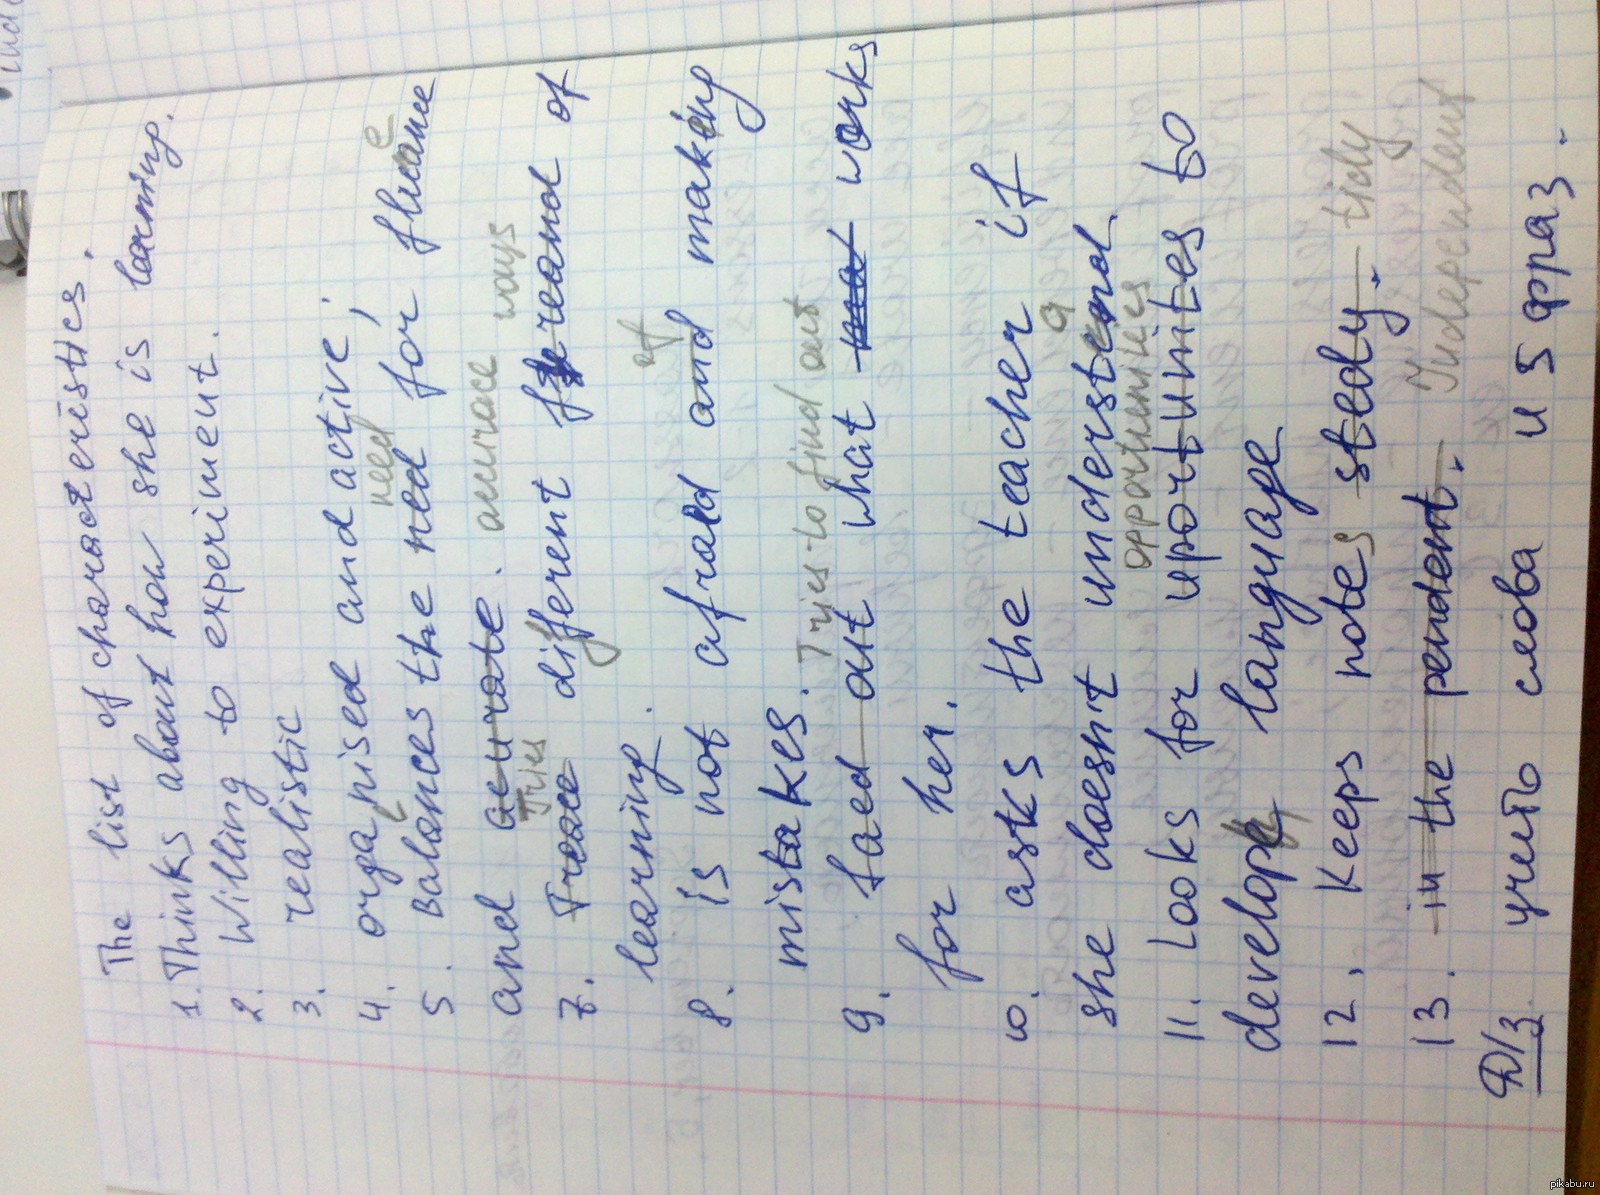 The list of characteristics.
1. Thinks about how she is learning.
2. Willing to experiment.
3. realistic
4. organised and active;
need e
5. Balances the ned for fluance
accurace ways
and acurate.
Tries
7. different freamd of
learning. of
8. is not afraid and making
mistakes. Tries to find out
9. faed out what works
for her.
10. asks the teacher if
a
she doesn't understend
opportunities
11. Looks for uportunites to
develope language
12. Keeps notes stedy. tidy
13. in the pendent. Independent
Д/з учить слова и 5 фраз.
pikabu.ru